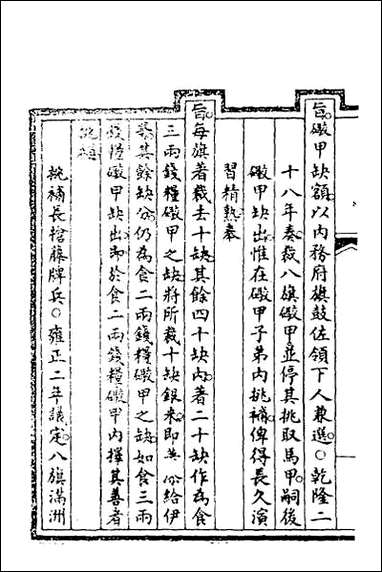 旨礮甲缺額以内務府旗鼓佐領下人兼選○乾隆二
十八年奏裁八旗礮甲並停其挑取馬甲嗣後
礮甲缺出惟在礮甲子弟内挑補俾得長久演
習精熟奉
旨每旗著裁去十缺其餘四十缺内著二十缺作為食
三兩錢糧礮甲之缺將所裁十缺銀米即共分給伊
等其餘缺分仍為食二兩錢糧礮甲之缺如食三兩
錢糧礮甲缺出即於食二兩錢糧礮甲内擇其善者
挑補
挑補長槍藤牌兵○雍正二年議定八旗滿洲